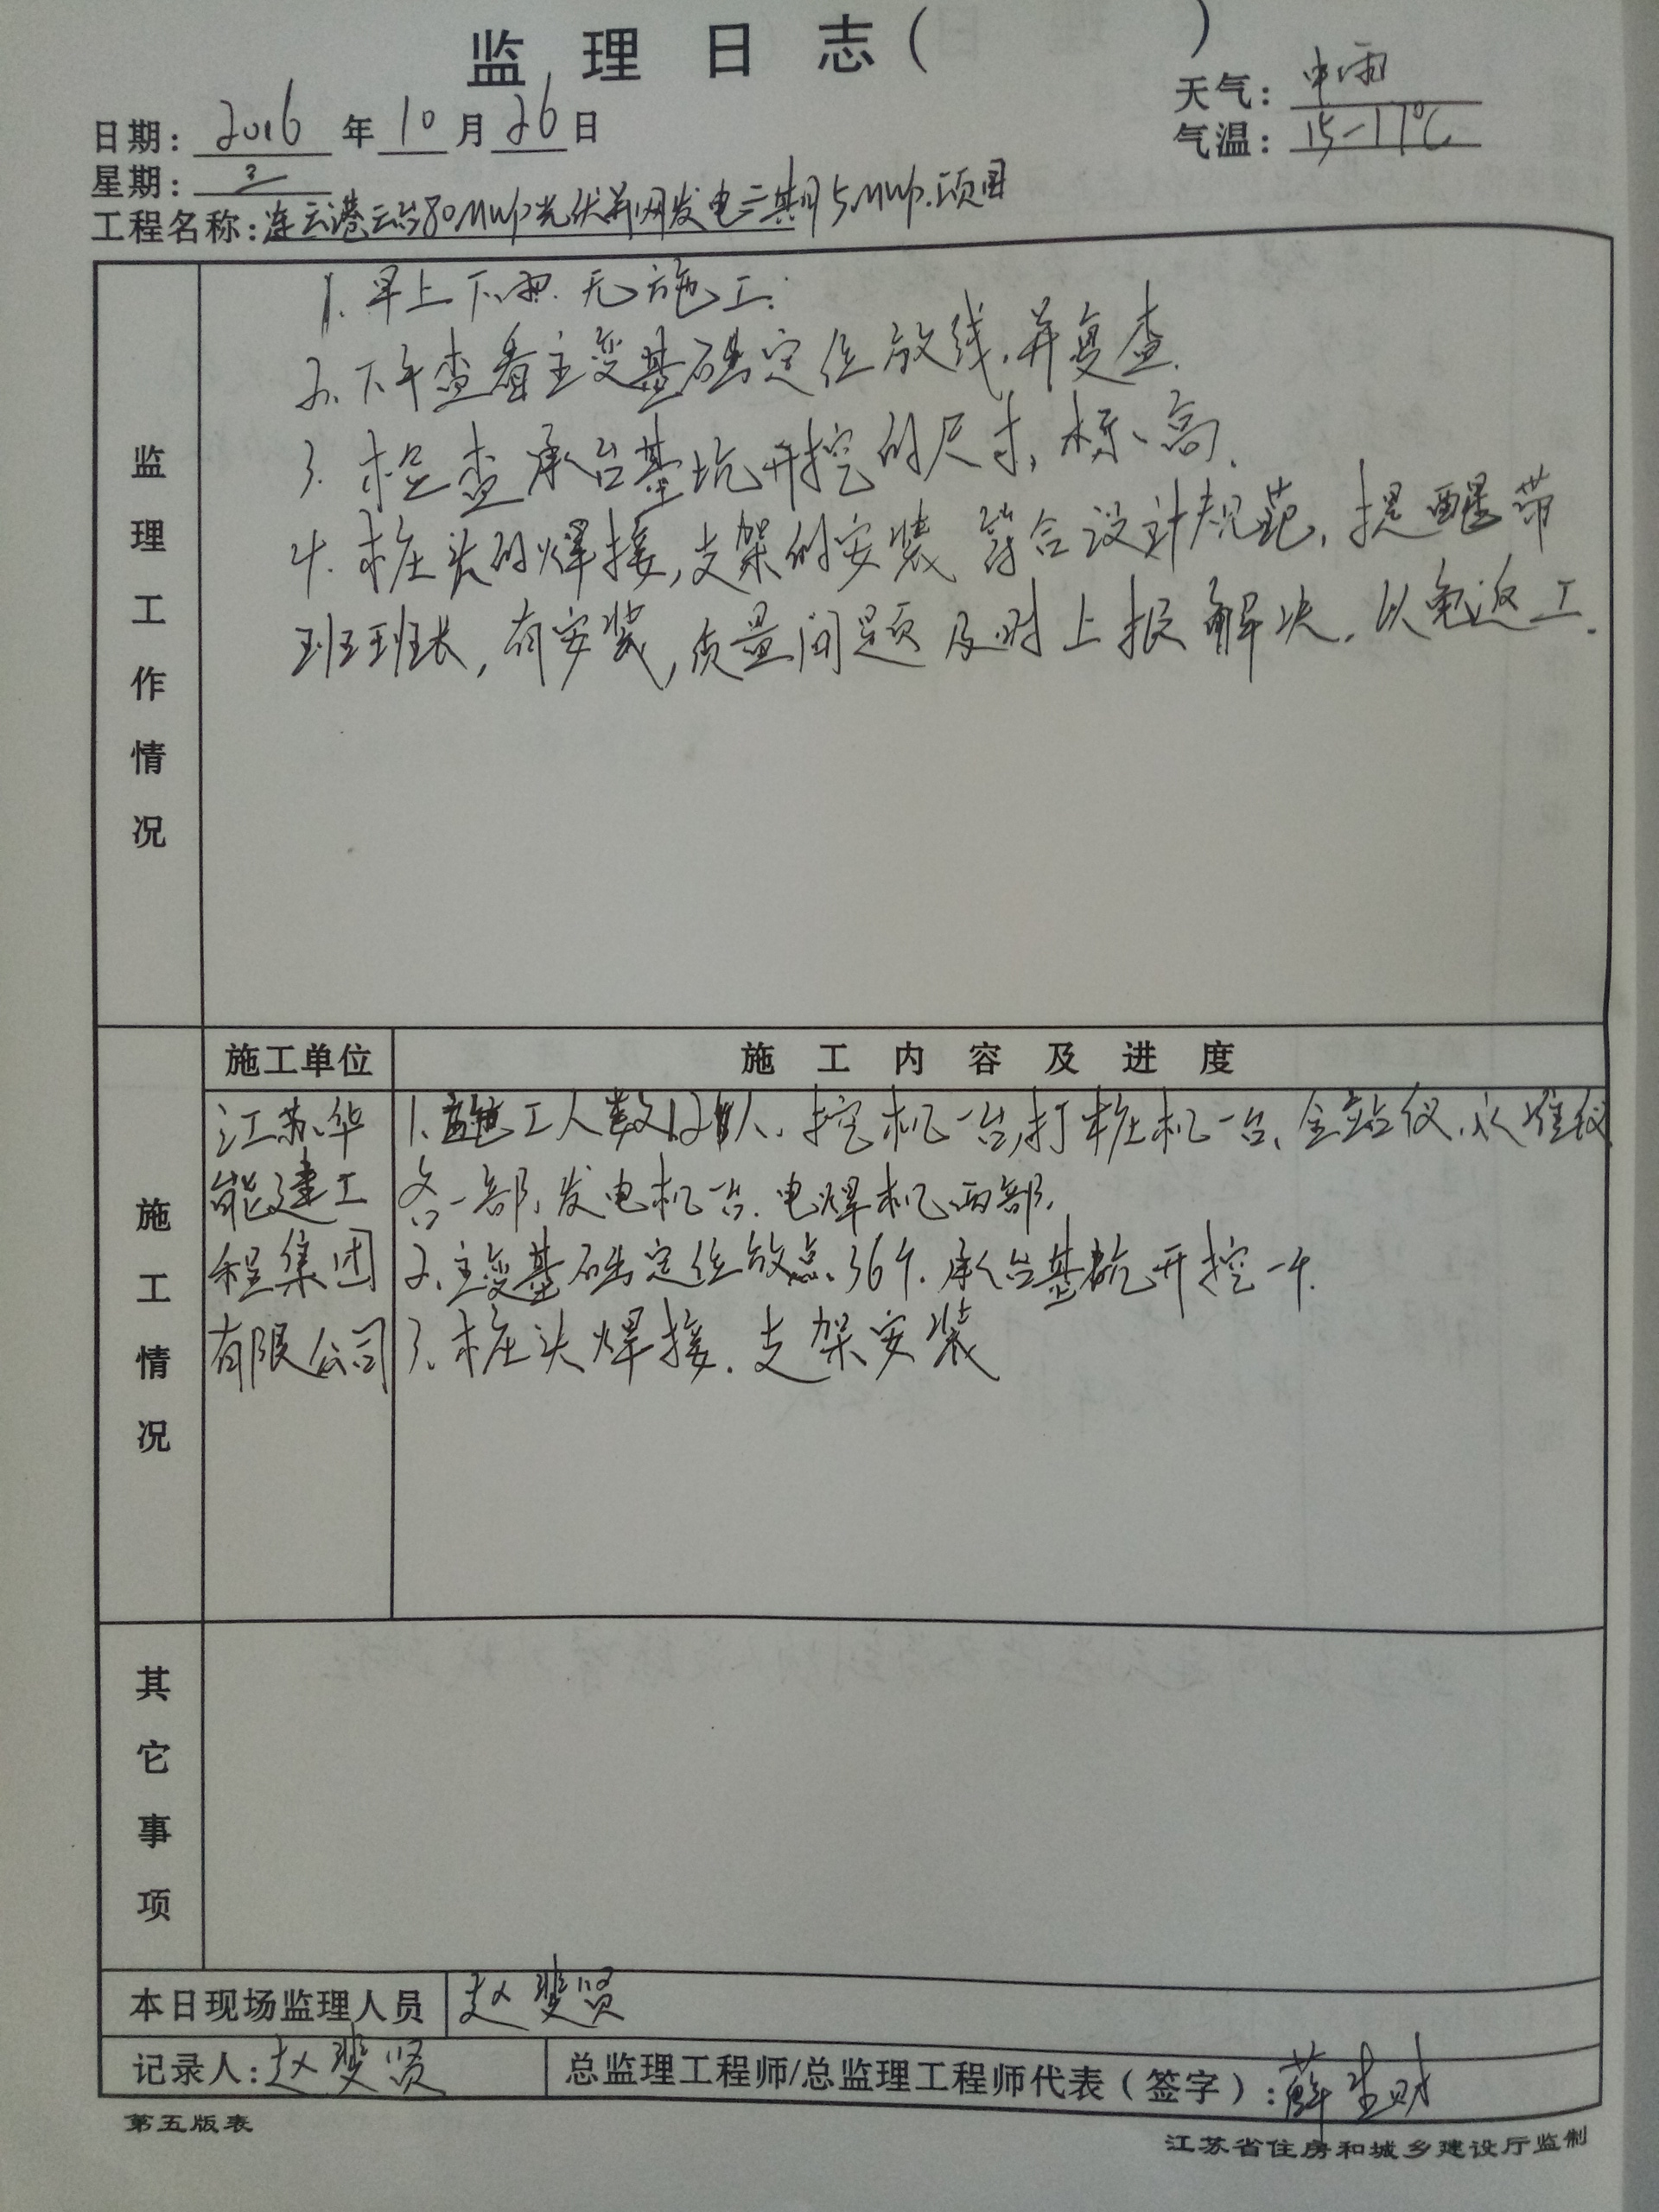 监理日志（ ）
天气：中雨
日期：2016年10月26日
气温：15-17℃
星期：三
工程名称：连云港云台80MWp光伏并网发电三期5MWp项目
监理工作情况
1. 早上下雨. 无施工.
2. 下午查看主变基础定位放线，并复查.
3. 检查承台基坑开挖的尺寸，标高.
4. 桩头的焊接，支架的安装符合设计规范，提醒带
班班长，有安装，质量问题及时上报解决，以免返工.
施工情况
施工单位
施工内容及进度
江苏华
能建工
程集团
有限公司
1. 施工人数12人. 挖机一台，打桩机一台、全站仪、水准仪
各一部，发电机一台. 电焊机两部.
2. 主变基础定位放点. 36个. 承台基坑开挖一个.
3. 桩头焊接. 支架安装
其它事项
本日现场监理人员 赵斐贤
记录人：赵斐贤
总监理工程师/总监理工程师代表（签字）：薛生财
第五版表
江苏省住房和城乡建设厅监制